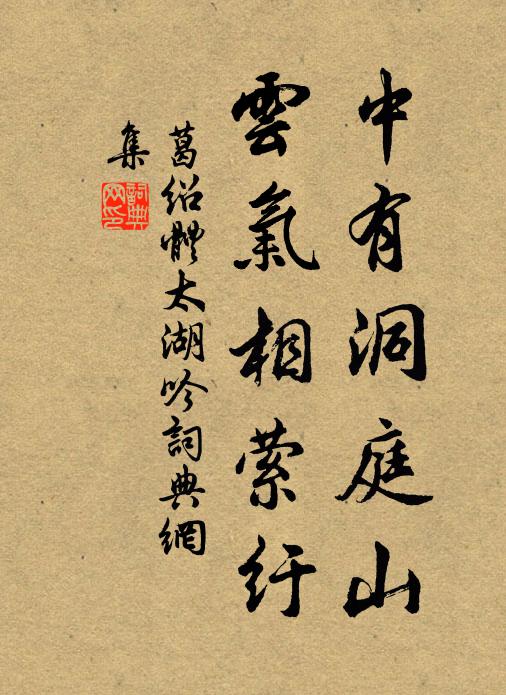 中有洞庭山
雲氣相縈紆
葛紹體太湖吟詞典網
集
詞典
网印